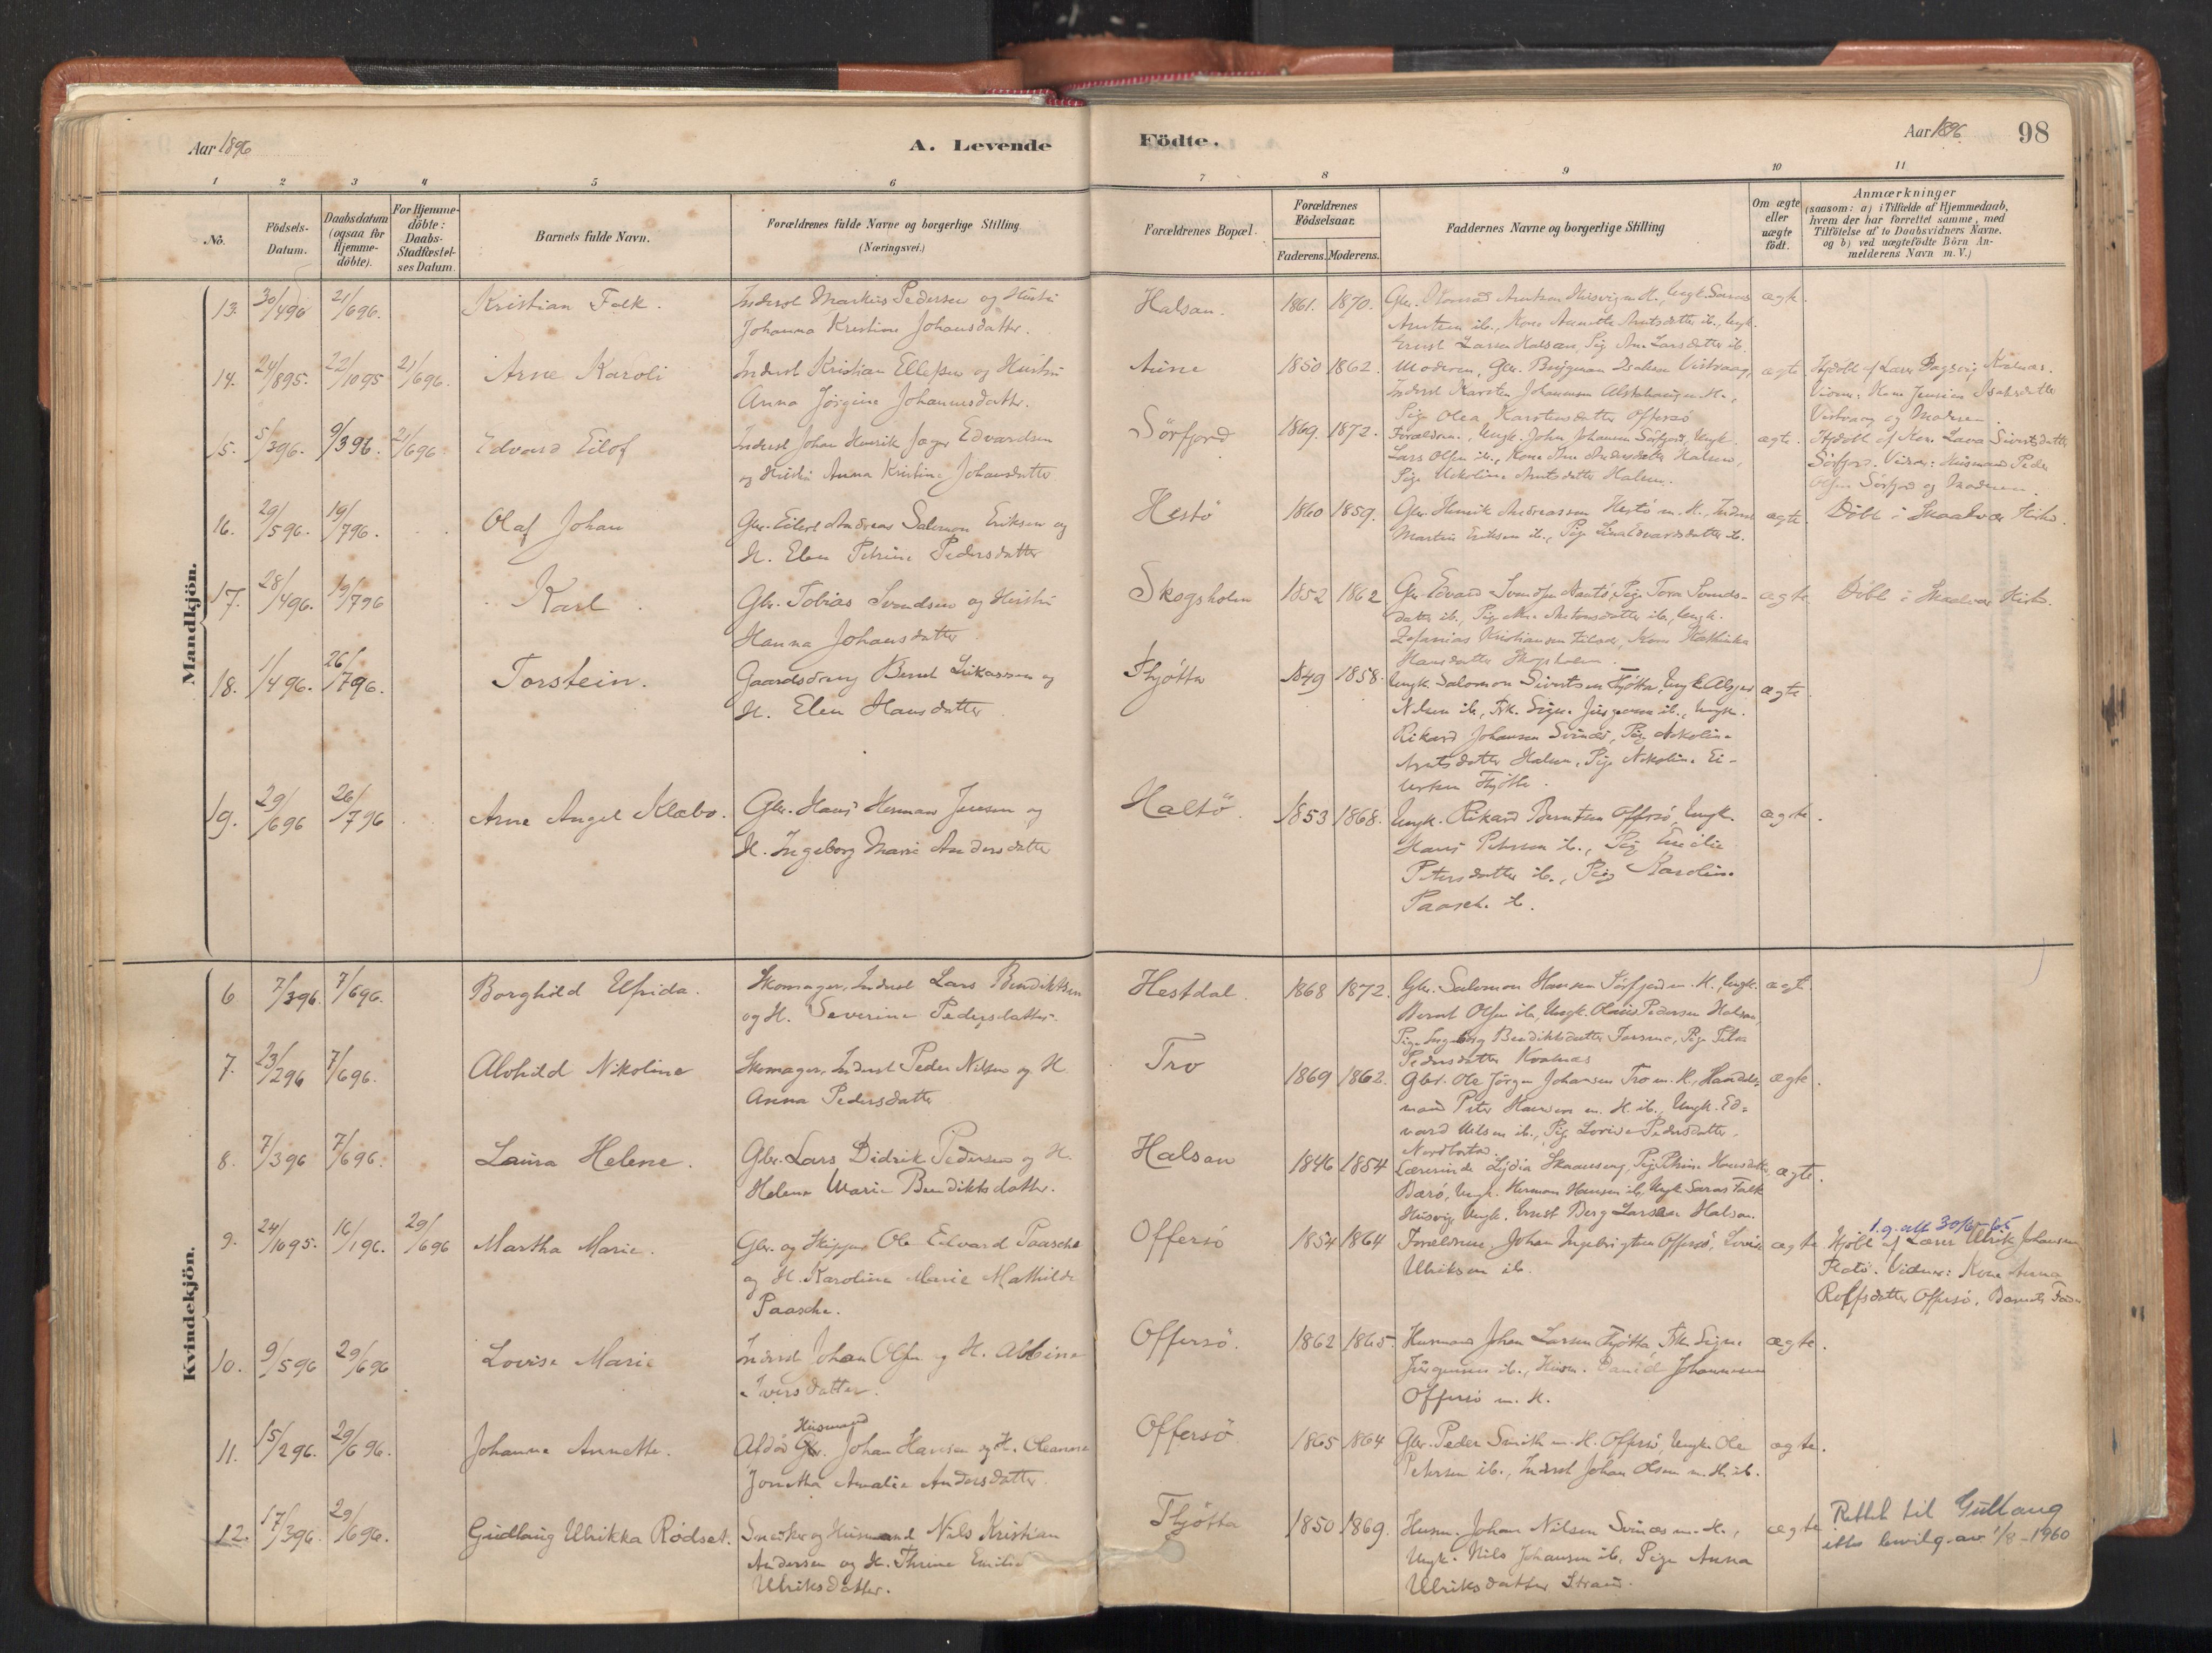 Aar 1896
A. Levende
Födte.
Aar 1896.
98
1 2 3 4 5 6 7 8 9 10 11
No.
Födsels-
Datum.
Daabsdatum
(ogsaa for
Hjemme-
döbte).
For Hjemme-
döbte:
Daabs-
Stadfæstel-
ses Datum.
Barnets fulde Navn.
Forældrenes fulde Navne og borgerlige Stilling
(Næringsvei.)
Forældrenes Bopæl.
Forældrenes
Födselsaar.
Faderens. Moderens.
Faddernes Navne og borgerlige Stilling
Om ægte
eller
uægte
födt.
Anmærkninger
(saasom: a) i Tilfælde af Hjemmedaab,
hvem der har forrettet samme, med
Tilföielse af to Daabsvidners Navne.
og b) ved uægtefödte Börn An-
melderens Navn m. V.)
Mandkjön.
13. 30/496 21/696. Kristian Falk.
Inderst Markus Pedersen og Hustru
Johanna Kristine Johansdatter.
Halsan. 1861. 1870.
Ernst Larsen Halsan, Pig
ægte.
14. 24/895. 22/1095 21/696. Arne Karoli
Inderst Kristian Ellefsen og Hustru
Anna Jörgine Johannesdatter.
Aune 1850 1862.
Moderen, Gbr.
Inderst Karsten Johannesen
Pige Olea Karstensdatter Offersö
ægte
Hjdöbt af Lars Dagsvig Kvalnæs.
Vidner: Kone
og Moderen.
15. 5/396. 9/396. 21/696 Edvard Eilof
Inderst Johan Henrik Jæger Edvardsen
og Hustru Anna Kristine Johansdatter
Sörfjord 1869. 1872.
Forældrene, Ungk. John Johansen Sörfjord, Ungk.
Lars Olsen ib., Kone Andersdatter Halsan,
Pige Nikoline Arntsdatter Halsan.
ægte.
Hjdöbt af Kone Lava Sivertsdatter
Sörfjord. Vidner: Husmand Peder
Olsen Sörfjord og Moderen.
16. 29/596. 19/796. Olaf Johan
Gbr. Eilert Andreas Salomon Eriksen og
H. Elen Petrine Pedersdatter
Hestö 1860 1859.
Gbr. Henrik Andreassen Hestö m. H., Inderst
Martin Eriksen ib., Pige Lina Edvardsdatter ib.
ægte. Döbt i Skaalvær Kirke.
17. 28/496. 19/796 Karl
Gbr. Tobias Svendsen og Hustru
Hanna Johansdatter
Skogsholm 1852 1862
Gbr. Edvard Svendsen
datter ib., Pige Antonsdatter ib., Ungk.
Zefanias Kristiansen Kone Kathinka
Hansdatter Skogsholm.
ægte. Döbt i Skaalvær Kirke.
18. 1/496. 26/796. Torstein.
Gaardsdreng Bernt Lukassen og
H. Elen Hansdatter
Thjötta 1849 1858.
Ungk. Salomon Sivertsen Thjötta, Ungk.
Nilsen ib., Frk. Signe Jürgensen ib., Ungk.
Rikard Johansen Svinæs, Pige Nikoline
Arntsdatter Halsan, Pige Nikoline Ei-
lertsen Thjötta.
ægte.
19. 29/696 26/796 Arne Angel Klæbo.
Gbr. Hans Herman Jensen og
H. Ingeborg Marie Andersdatter
Haltö. 1853 1868.
Ungk. Rikard Berntsen Offersö, Ungk.
Hans Petersen ib., Pige Emilie
Petersdatter ib., Pige Karoline
Paasche ib.
ægte.
Kvindekjön.
6 7/396. 7/696. Borghild Ufrida.
Skomager, Inderst Lars Bendiktsen
og H. Severine Pedersdatter.
Hestdal. 1868 1872.
Gbr. Salomon Hansen Sörfjord m. H., Ungk.
Bernt Olsen ib., Ungk. Olaus Pedersen Halsan,
Pige Ingeborg Bendiktsdatter Forsmo, Pige
Pedersdatter Kvalnæs
ægte.
7. 23/296 7/696. Alvhild Nikoline
Skomager, Inderst Peder Nilsen og H.
Anna Pedersdatter
Tro 1869 1862.
Gbr. Ole Jörgen Johansen Tro m. H., Handels-
mand Peter Hansen m. H. ib., Ungk. Ed-
vard Nilsen ib., Pige Lovise Pedersdatter,
ægte.
8. 7/396 7/696. Laura Helene.
Gbr. Lars Didrik Pedersen og H.
Helene Marie Bendiktsdatter.
Halsan 1846 1854
Lærerinde Lydia Pige Petrine Hansdatter
Ungk. Herman Hansen ib., Ungk. Saras Falk
Husvig, Ungk. Ernst Berg Larsen Halsan.
ægte.
9. 24/1095. 16/196. 29/696 Martha Marie.
Gbr. og Skipper Ole Edvard Paasche
og H. Karoline Marie Mathilde
Paasche.
Offersö 1854 1864
Forældrene, Johan Ingebrigtsen Offersö, Lovise
Ulriksen ib.
ægte
1. g. att 30/6-65
Hjdöbt af Lærer Ulrik Johansen
Flatö. Vidner: Kone Anna
Rolfsdatter Offersö, Barnets Fader
10. 9/596 29/696 Lovise Marie
Inderst Johan Olsen og H. Albine
Iversdatter.
Offersö. 1862 1865.
Husmand Johan Larsen Thjötta, Frk. Signe
Jürgensen ib., Husm. Daniel Johannesen
Offersö m. H.
ægte.
11. 15/296. 29/696. Johanne Annette.
Husmand
Afdöd Gbr. Johan Hansen og H. Oleanna
Jonetta Amalie Andersdatter
Offersö 1865 1864
Gbr. Peder Smith m. H. Offersö, Ungk. Ole
Petersen ib., Inderst Johan Olsen m. H. ib.
ægte.
12. 17/396. 29/696. Gudlaug Ulrikka Rödset.
Snedker og Husmand Nils Kristian
Andersen og H. Thrine Emilie
Ulriksdatter.
Thjötta 1850 1869.
Husm. Johan Nilsen Svinæs m. H.,
Ungk. Nils Johansen ib., Pige Anna
Ulriksdatter Straum.
ægte.
Rettet til Gullaug
etter bevilg. av 1/8-1960